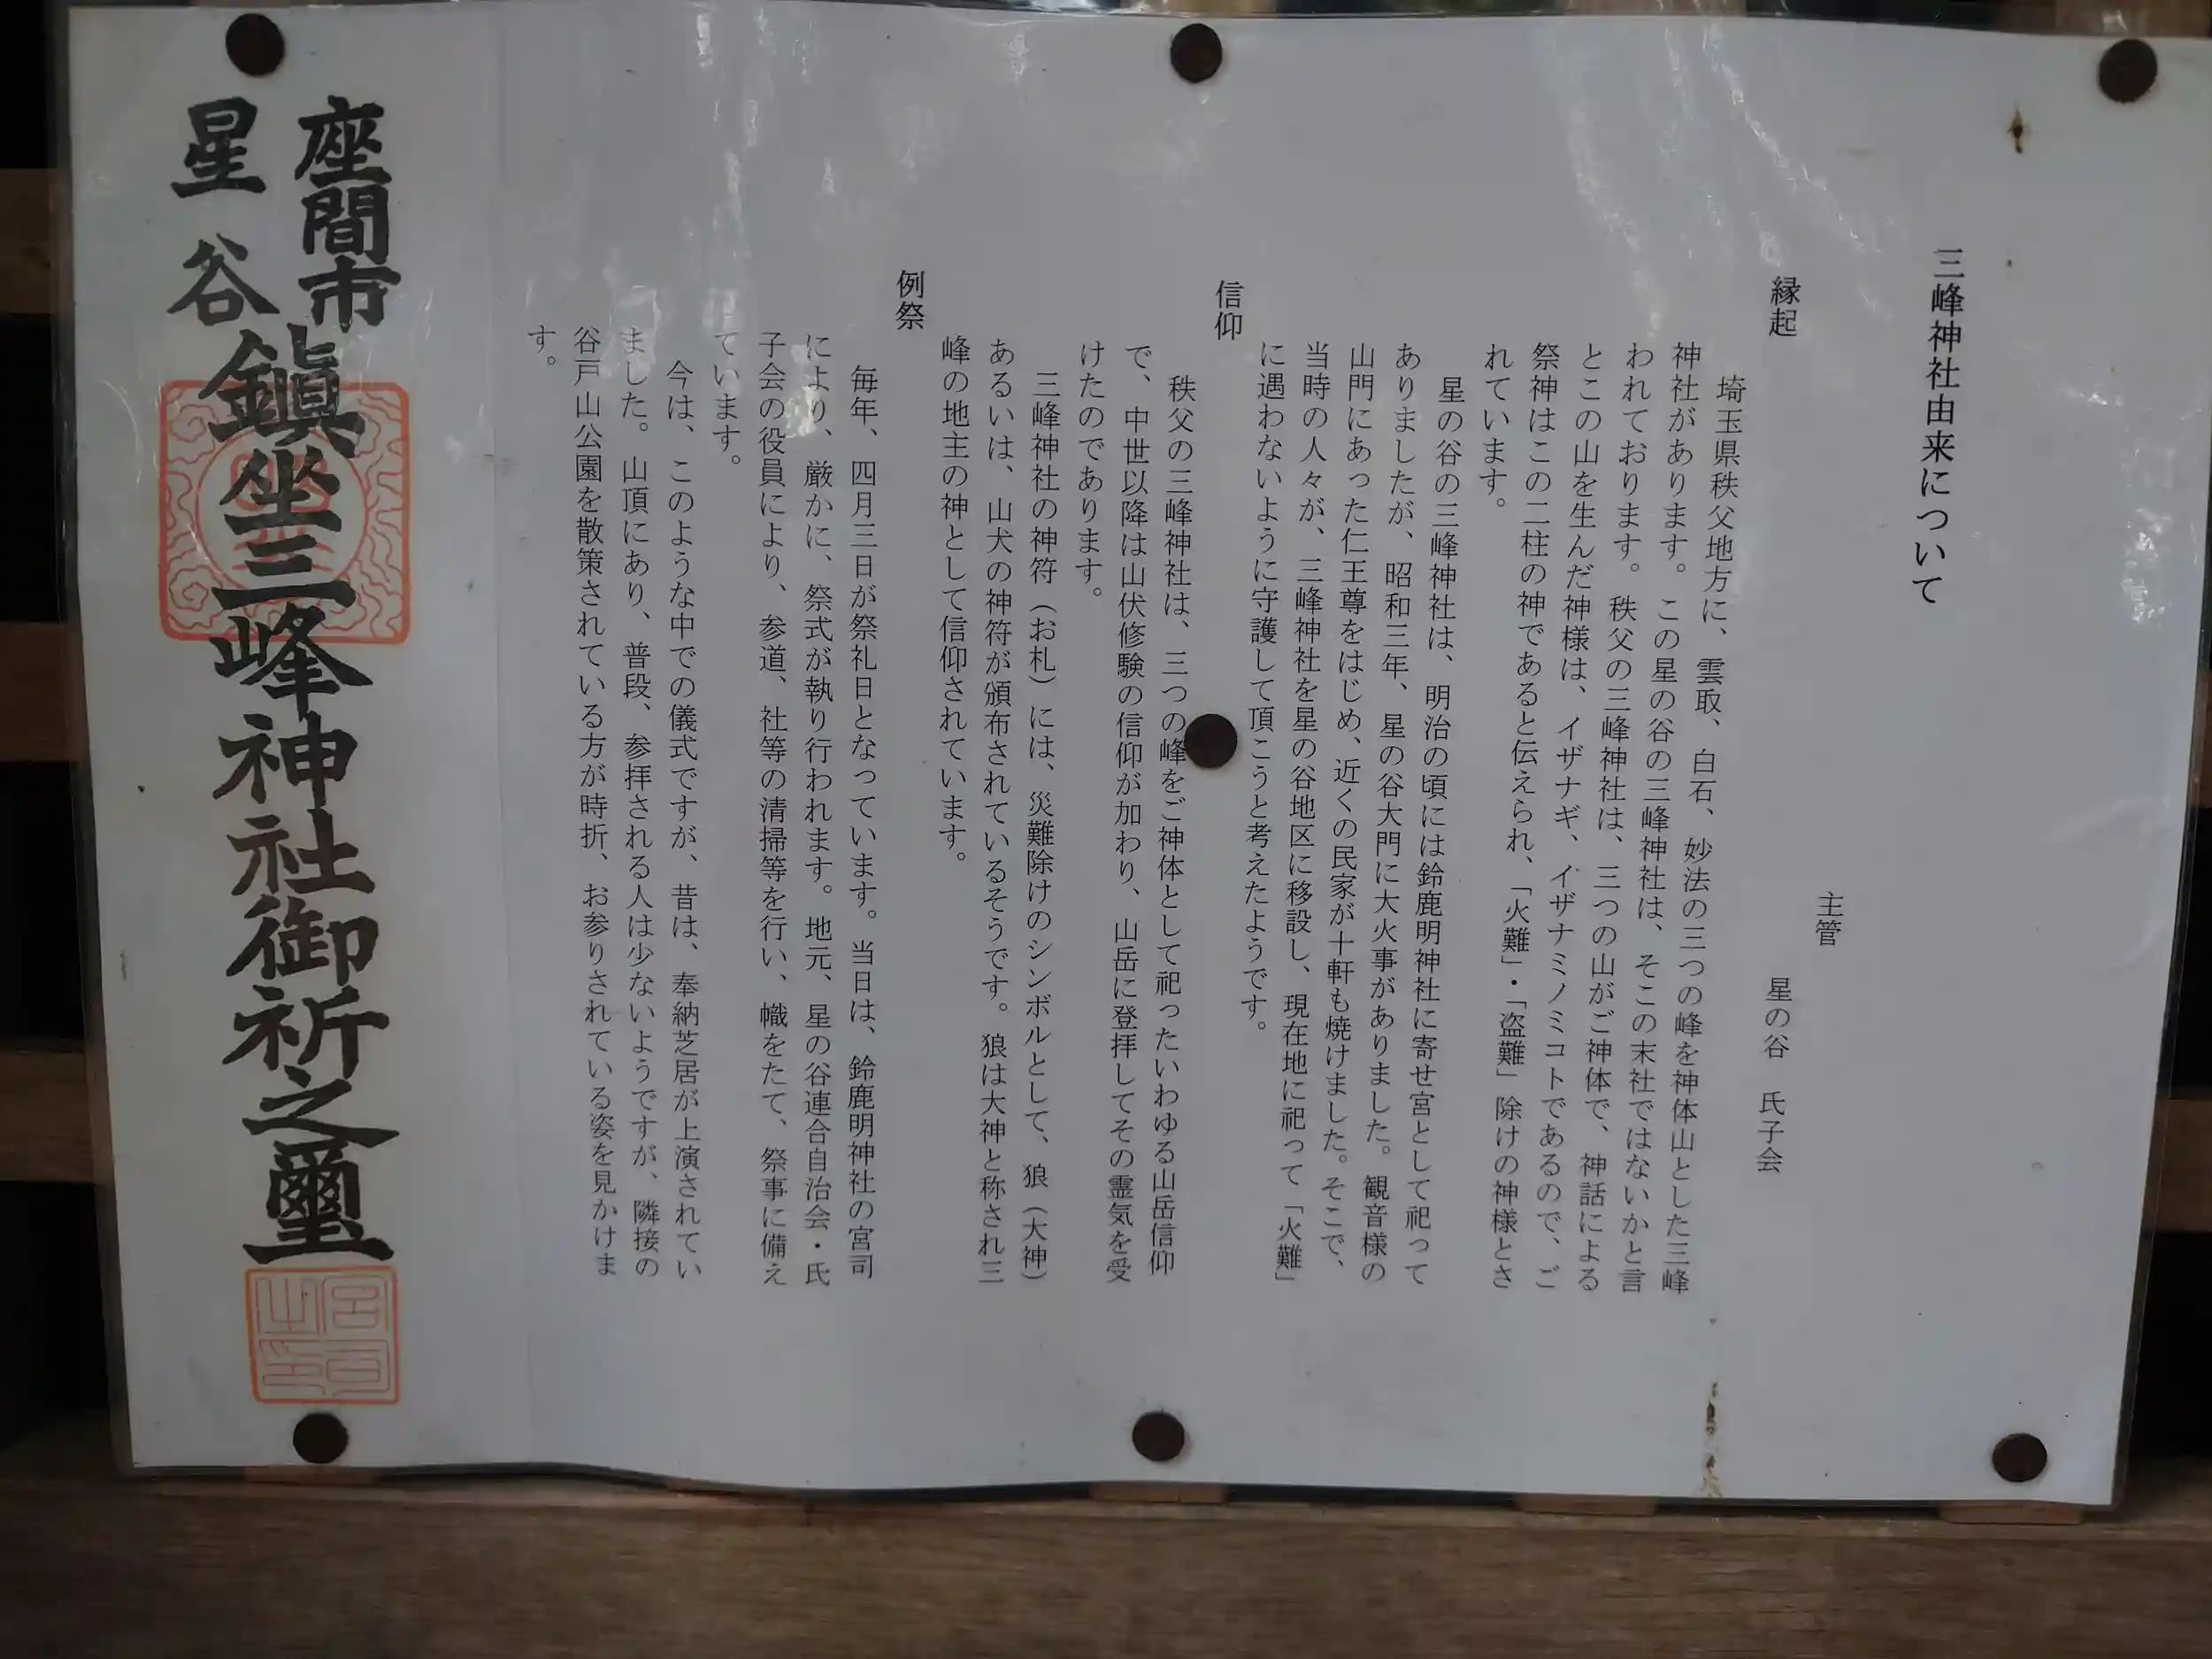 三峰神社由来について
主管
星の谷　氏子会
縁起
埼玉県秩父地方に、雲取、白石、妙法の三つの峰を神体山とした三峰
神社があります。この星の谷の三峰神社は、そこの末社ではないかと言
われております。秩父の三峰神社は、三つの山がご神体で、神話による
とこの山を生んだ神様は、イザナギ、イザナミノミコトであるので、ご
祭神はこの二柱の神であると伝えられ、「火難」・「盗難」除けの神様とさ
れています。
星の谷の三峰神社は、明治の頃には鈴鹿明神社に寄せ宮として祀って
ありましたが、昭和三年、星の谷大門に大火事がありました。観音様の
山門にあった仁王尊をはじめ、近くの民家が十軒も焼けました。そこで、
当時の人々が、三峰神社を星の谷地区に移設し、現在地に祀って「火難」
に遇わないように守護して頂こうと考えたようです。
信仰
秩父の三峰神社は、三つの峰をご神体として祀ったいわゆる山岳信仰
で、中世以降は山伏修験の信仰が加わり、山岳に登拝してその霊気を受
けたのであります。
三峰神社の神符（お札）には、災難除けのシンボルとして、狼（大神）
あるいは、山犬の神符が頒布されているそうです。狼は大神と称され三
峰の地主の神として信仰されています。
例祭
毎年、四月三日が祭礼日となっています。当日は、鈴鹿明神社の宮司
により、厳かに、祭式が執り行われます。地元、星の谷連合自治会・氏
子会の役員により、参道、社等の清掃等を行い、幟をたて、祭事に備え
ています。
今は、このような中での儀式ですが、昔は、奉納芝居が上演されてい
ました。山頂にあり、普段、参拝される人は少ないようですが、隣接の
谷戸山公園を散策されている方が時折、お参りされている姿を見かけま
す。
座間市
星谷
鎮坐三峰神社御祈之璽
宮司之印